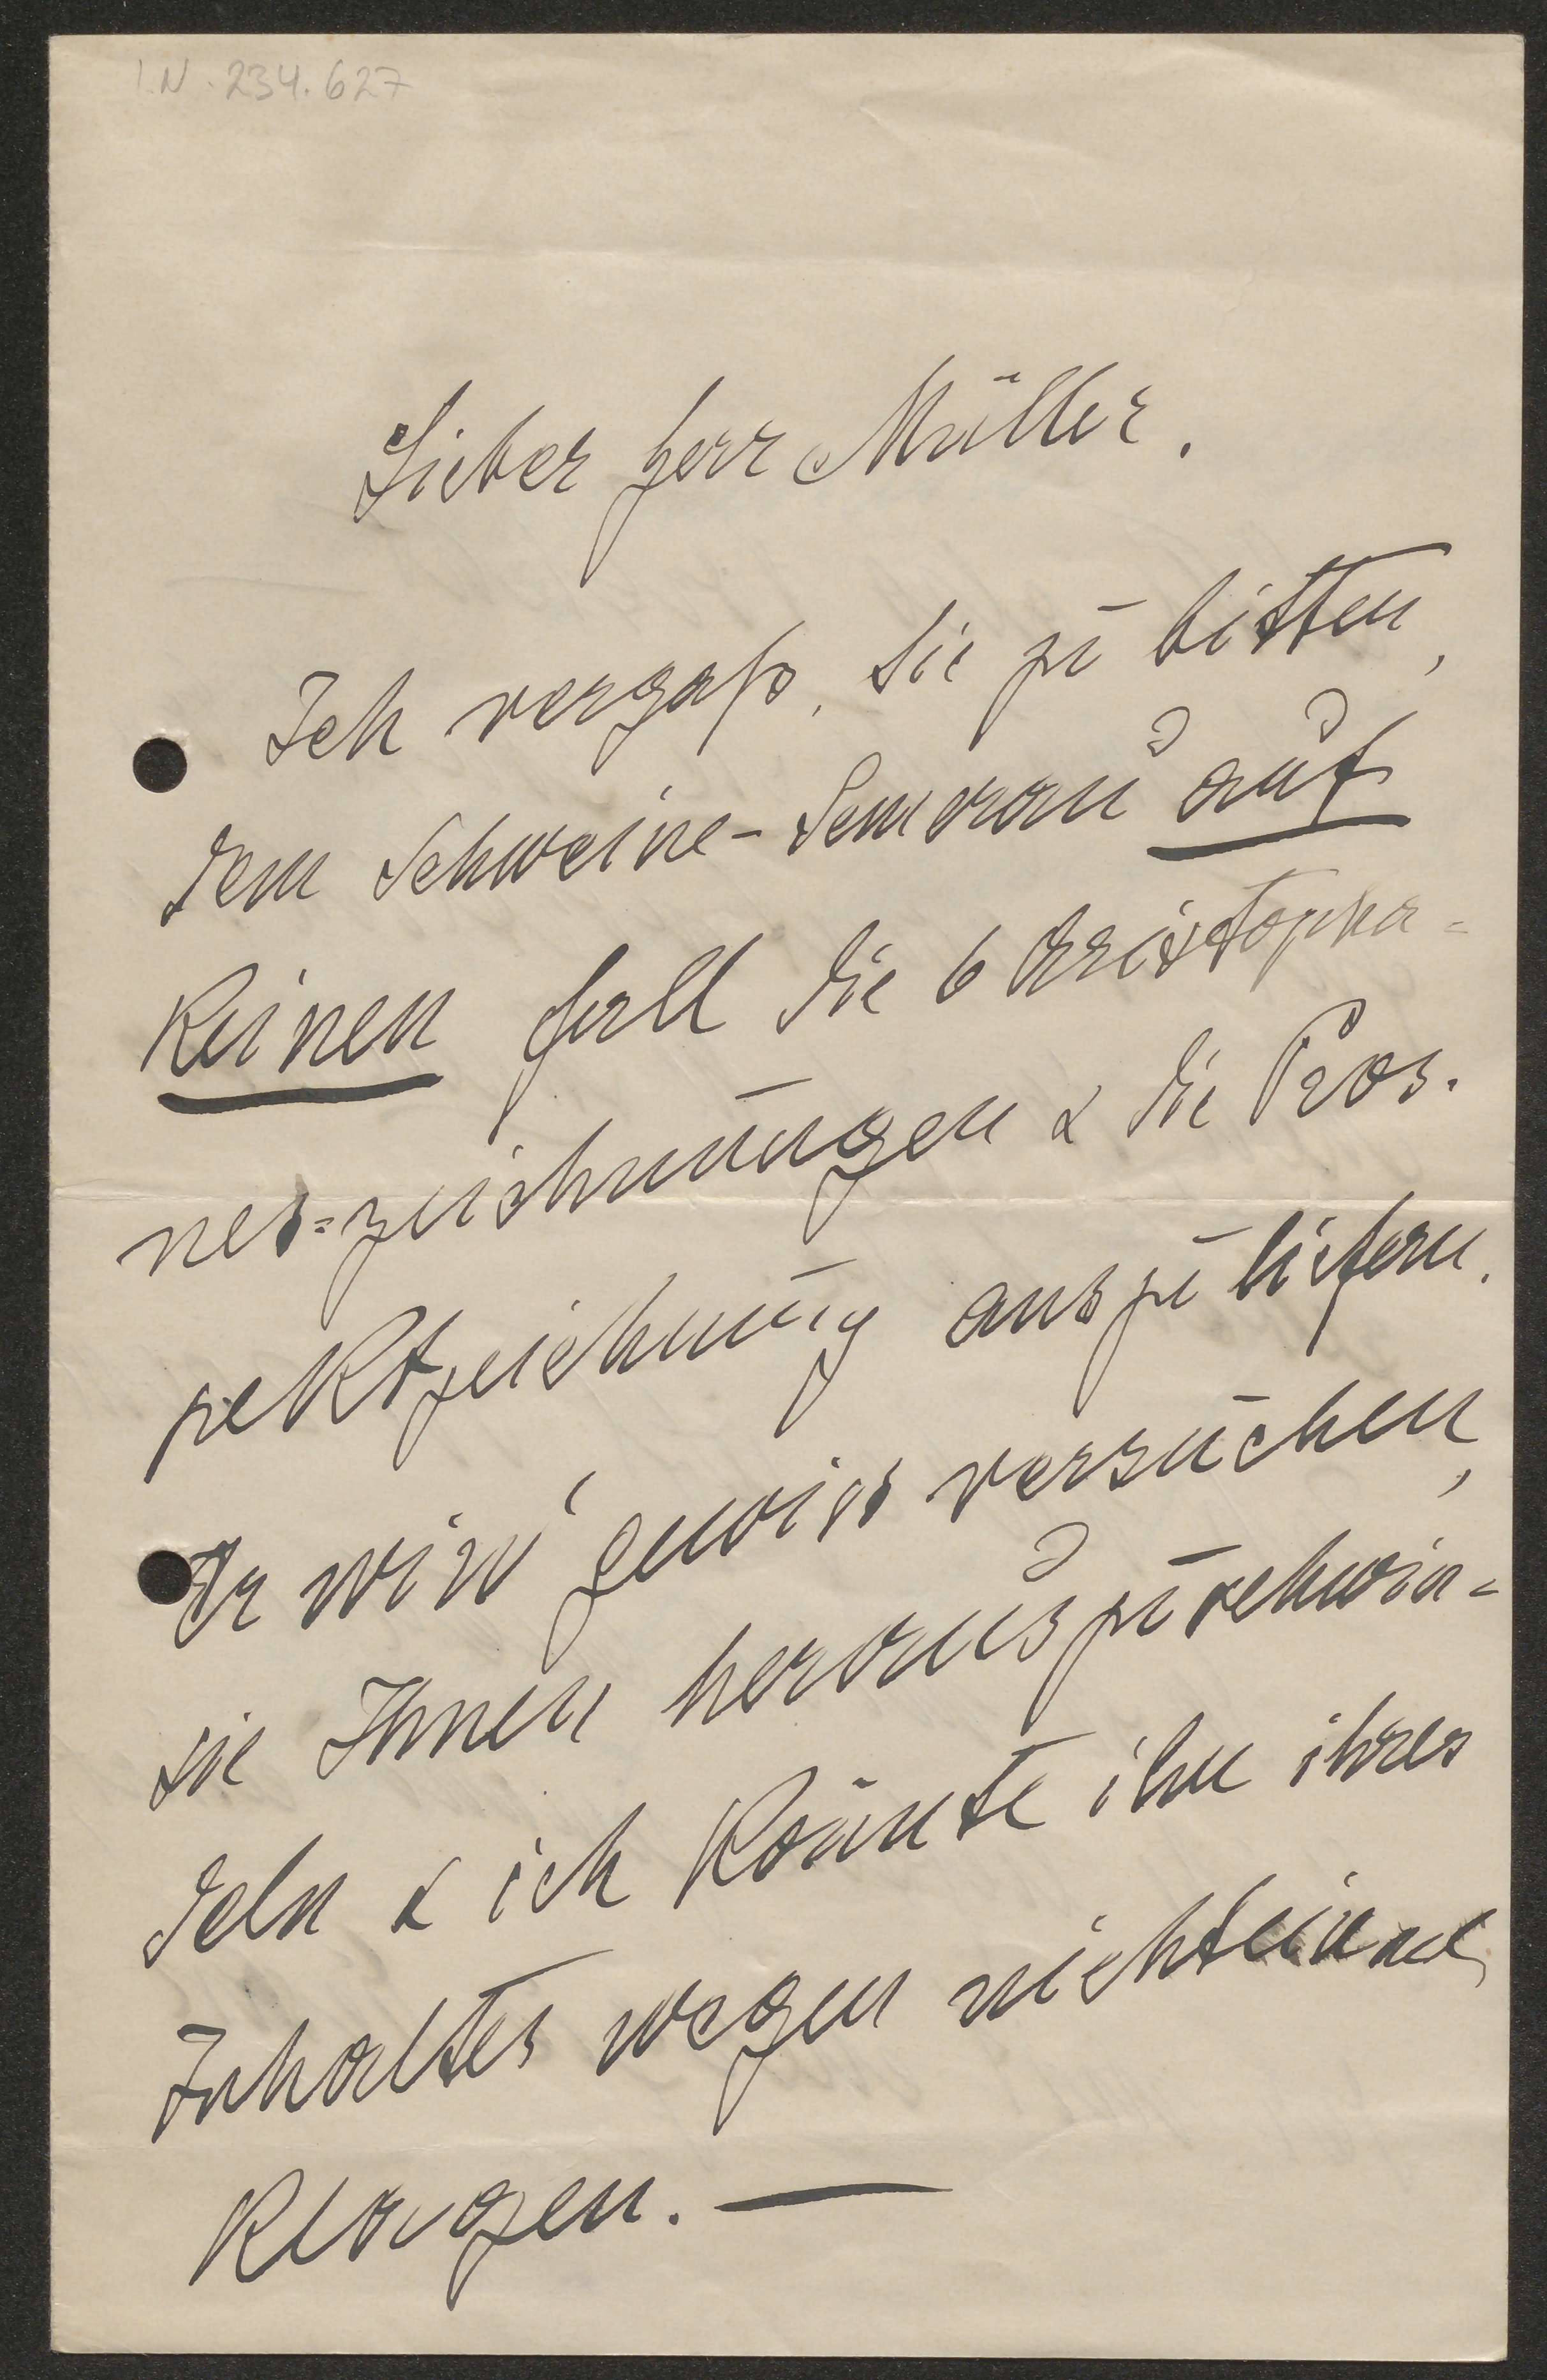 I.N. 234.627
Lieber Herr Müller.
Ich vergaß, Sie zu bitten,
dem Schweine-Semrau auf
keinen Fall die 6 Aristopha=
nes=zeichnungen & die Pros.
pektzeichnung auszuliefern.
Er wird gewiss versuchen,
sie Ihnen herauszuschwin=
deln & ich könnte ihn ihres
Inhaltes wegen nicht
klagen. —